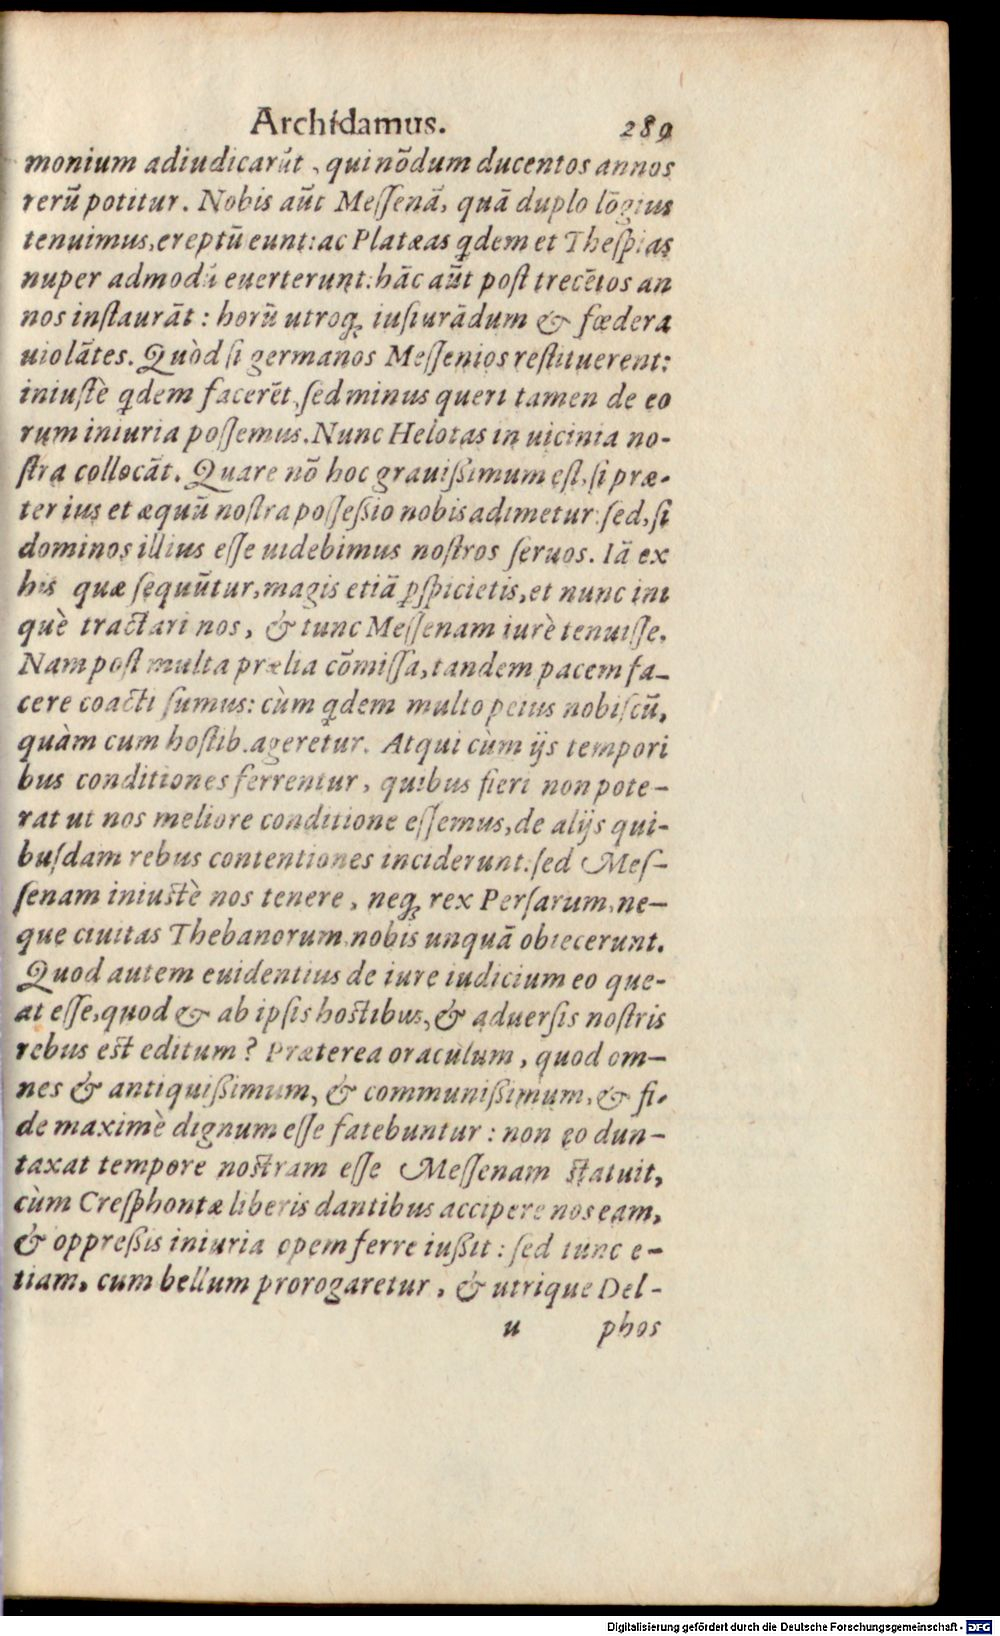 Archidamus. 289
monium adiudicarūt, qui nōdum ducentos annos
rerū potitur. Nobis aūt Meſſenā, quā duplo lōgius
tenuimus, ereptū eunt: ac Platæas qdem et Theſpias
nuper admodū euerterunt: hāc aūt poſt trecētos an
nos inſtaurāt: horū utroq; iuſiurādum & fœdera
uiolātes. Quòd ſi germanos Meſſenios reſtituerent:
iniuſtè qdem facerēt, ſed minus queri tamen de eo
rum iniuria poſſemus. Nunc Helotas in uicinia no-
ſtra collocāt. Quare nō hoc grauißimum eſt, ſi præ-
ter ius et æquū noſtra poſſeßio nobis adimetur: ſed, ſi
dominos illius eſſe uidebimus noſtros ſeruos. Iā ex
his quæ ſequūtur, magis etiā ꝑſpicietis, et nunc ini
què tractari nos, & tunc Meſſenam iurè tenuiſſe.
Nam poſt multa prælia cōmiſſa, tandem pacem fa-
cere coacti ſumus: cùm qdem multo peius nobiſcū,
quàm cum hoſtib. ageretur. Atqui cùm ijs tempori
bus conditiones ferrentur, quibus fieri non pote-
rat ut nos meliore conditione eſſemus, de alijs qui-
buſdam rebus contentiones inciderunt: ſed Meſ-
ſenam iniuſtè nos tenere, neq; rex Perſarum, ne-
que ciuitas Thebanorum, nobis unquā obiecerunt.
Quod autem euidentius de iure iudicium eo que-
at eſſe, quod & ab ipſis hoſtibus, & aduerſis noſtris
rebus eſt editum? Præterea oraculum, quod om-
nes & antiquißimum, & communißimum, & fi-
de maximè dignum eſſe fatebuntur: non eo dun-
taxat tempore noſtram eſſe Meſſenam ſtatuit,
cùm Creſphontæ liberis dantibus accipere nos eam,
& oppreßis iniuria opem ferre iußit: ſed tunc e-
tiam, cum bellum prorogaretur, & utrique Del-
u phos
Digitalisierung gefördert durch die Deutsche Forschungsgemeinschaft - DFG